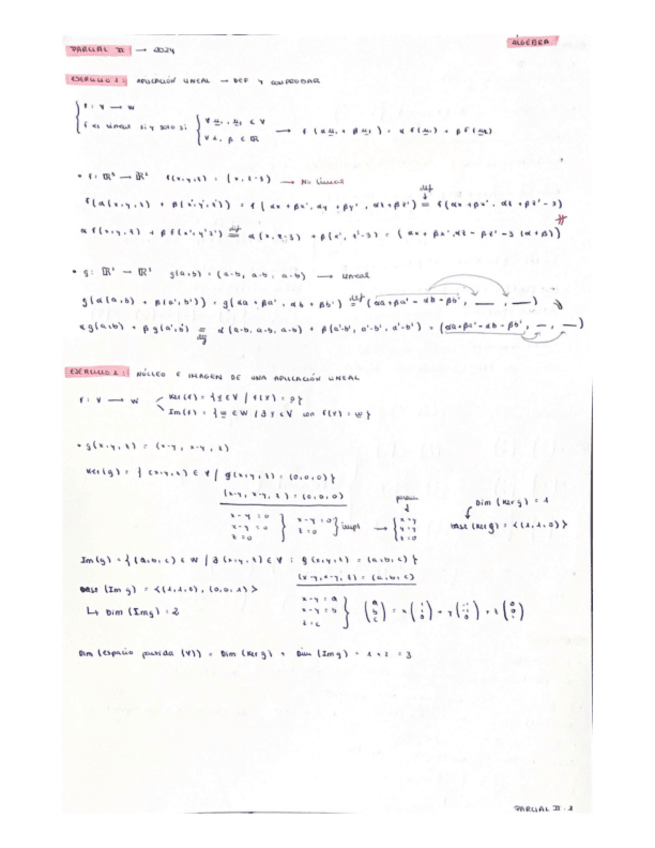 PARCIAL II → 2024
ÁLGEBRA
EJERCICIO 1: APLICACIÓN LINEAL → DEF Y COMPROBAR
f: V → W
f es lineal si y solo si { ∀ u₁, u₂ ∈ V
∀ α, β ∈ ℝ → f(αu₁ + βu₂) = α f(u₁) + β f(u₂)
• f: ℝ³ → ℝ² f(x,y,z) = (x, z-3) → No lineal
f(α(x,y,z) + β(x',y',z')) = f(αx + βx', αy + βy', αz + βz') =def f(αx + βx', αz + βz' - 3)
α f(x,y,z) + β f(x',y',z') =def α(x, z-3) + β(x', z'-3) = (αx + βx', αz - βz' - 3(α+β))
• g: ℝ² → ℝ³ g(a,b) = (a-b, a-b, a-b) → lineal
g(α(a,b) + β(a',b')) = g(αa + βa', αb + βb') =def (αa+βa' - αb - βb', —, —)
αg(a,b) + βg(a',b') =def g α(a-b, a-b, a-b) + β(a'-b', a'-b', a'-b') = (αa+βa' - αb - βb', —, —)
EJERCICIO 2: NÚCLEO E IMAGEN DE UNA APLICACIÓN LINEAL
f: V → W
Ker(f) = { v ∈ V / f(v) = 0 }
Im(f) = { w ∈ W / ∃ v ∈ V con f(v) = w }
• g(x,y,z) = (x-y, x-y, z)
Ker(g) = { (x,y,z) ∈ V / g(x,y,z) = (0,0,0) }
(x-y, x-y, z) = (0,0,0)
x-y = 0
x-y = 0
z = 0
} x-y = 0
z = 0 } impl →
param
x = y
y = y
z = 0
Dim (Ker g) = 1
base (Ker g) = <(1,1,0)>
Im(g) = { (a,b,c) ∈ W / ∃ (x,y,z) ∈ V : g(x,y,z) = (a,b,c) }
(x-y, x-y, z) = (a,b,c)
Base (Im g) = <(1,1,0), (0,0,1)>
↳ Dim (Im g) = 2
x-y = a
x-y = b
z = c
(a b c) = x(1 1 0) + y(-1 -1 0) + z(0 0 1)
Dim (espacio partida (V)) = Dim (Ker g) + Dim (Im g) = 1 + 2 = 3
PARCIAL II - 1